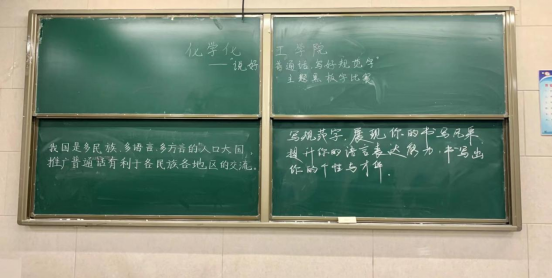 化学化工学院
——"说好普通话,写好规范字"
主题黑板字比赛
我国是多民族、多语言、多方言的人口大国,
推广普通话有利于各民族各地区的交流。
写规范字,展现你的书写风采
提升你的语言表达能力,书写出
你的个性与才华.